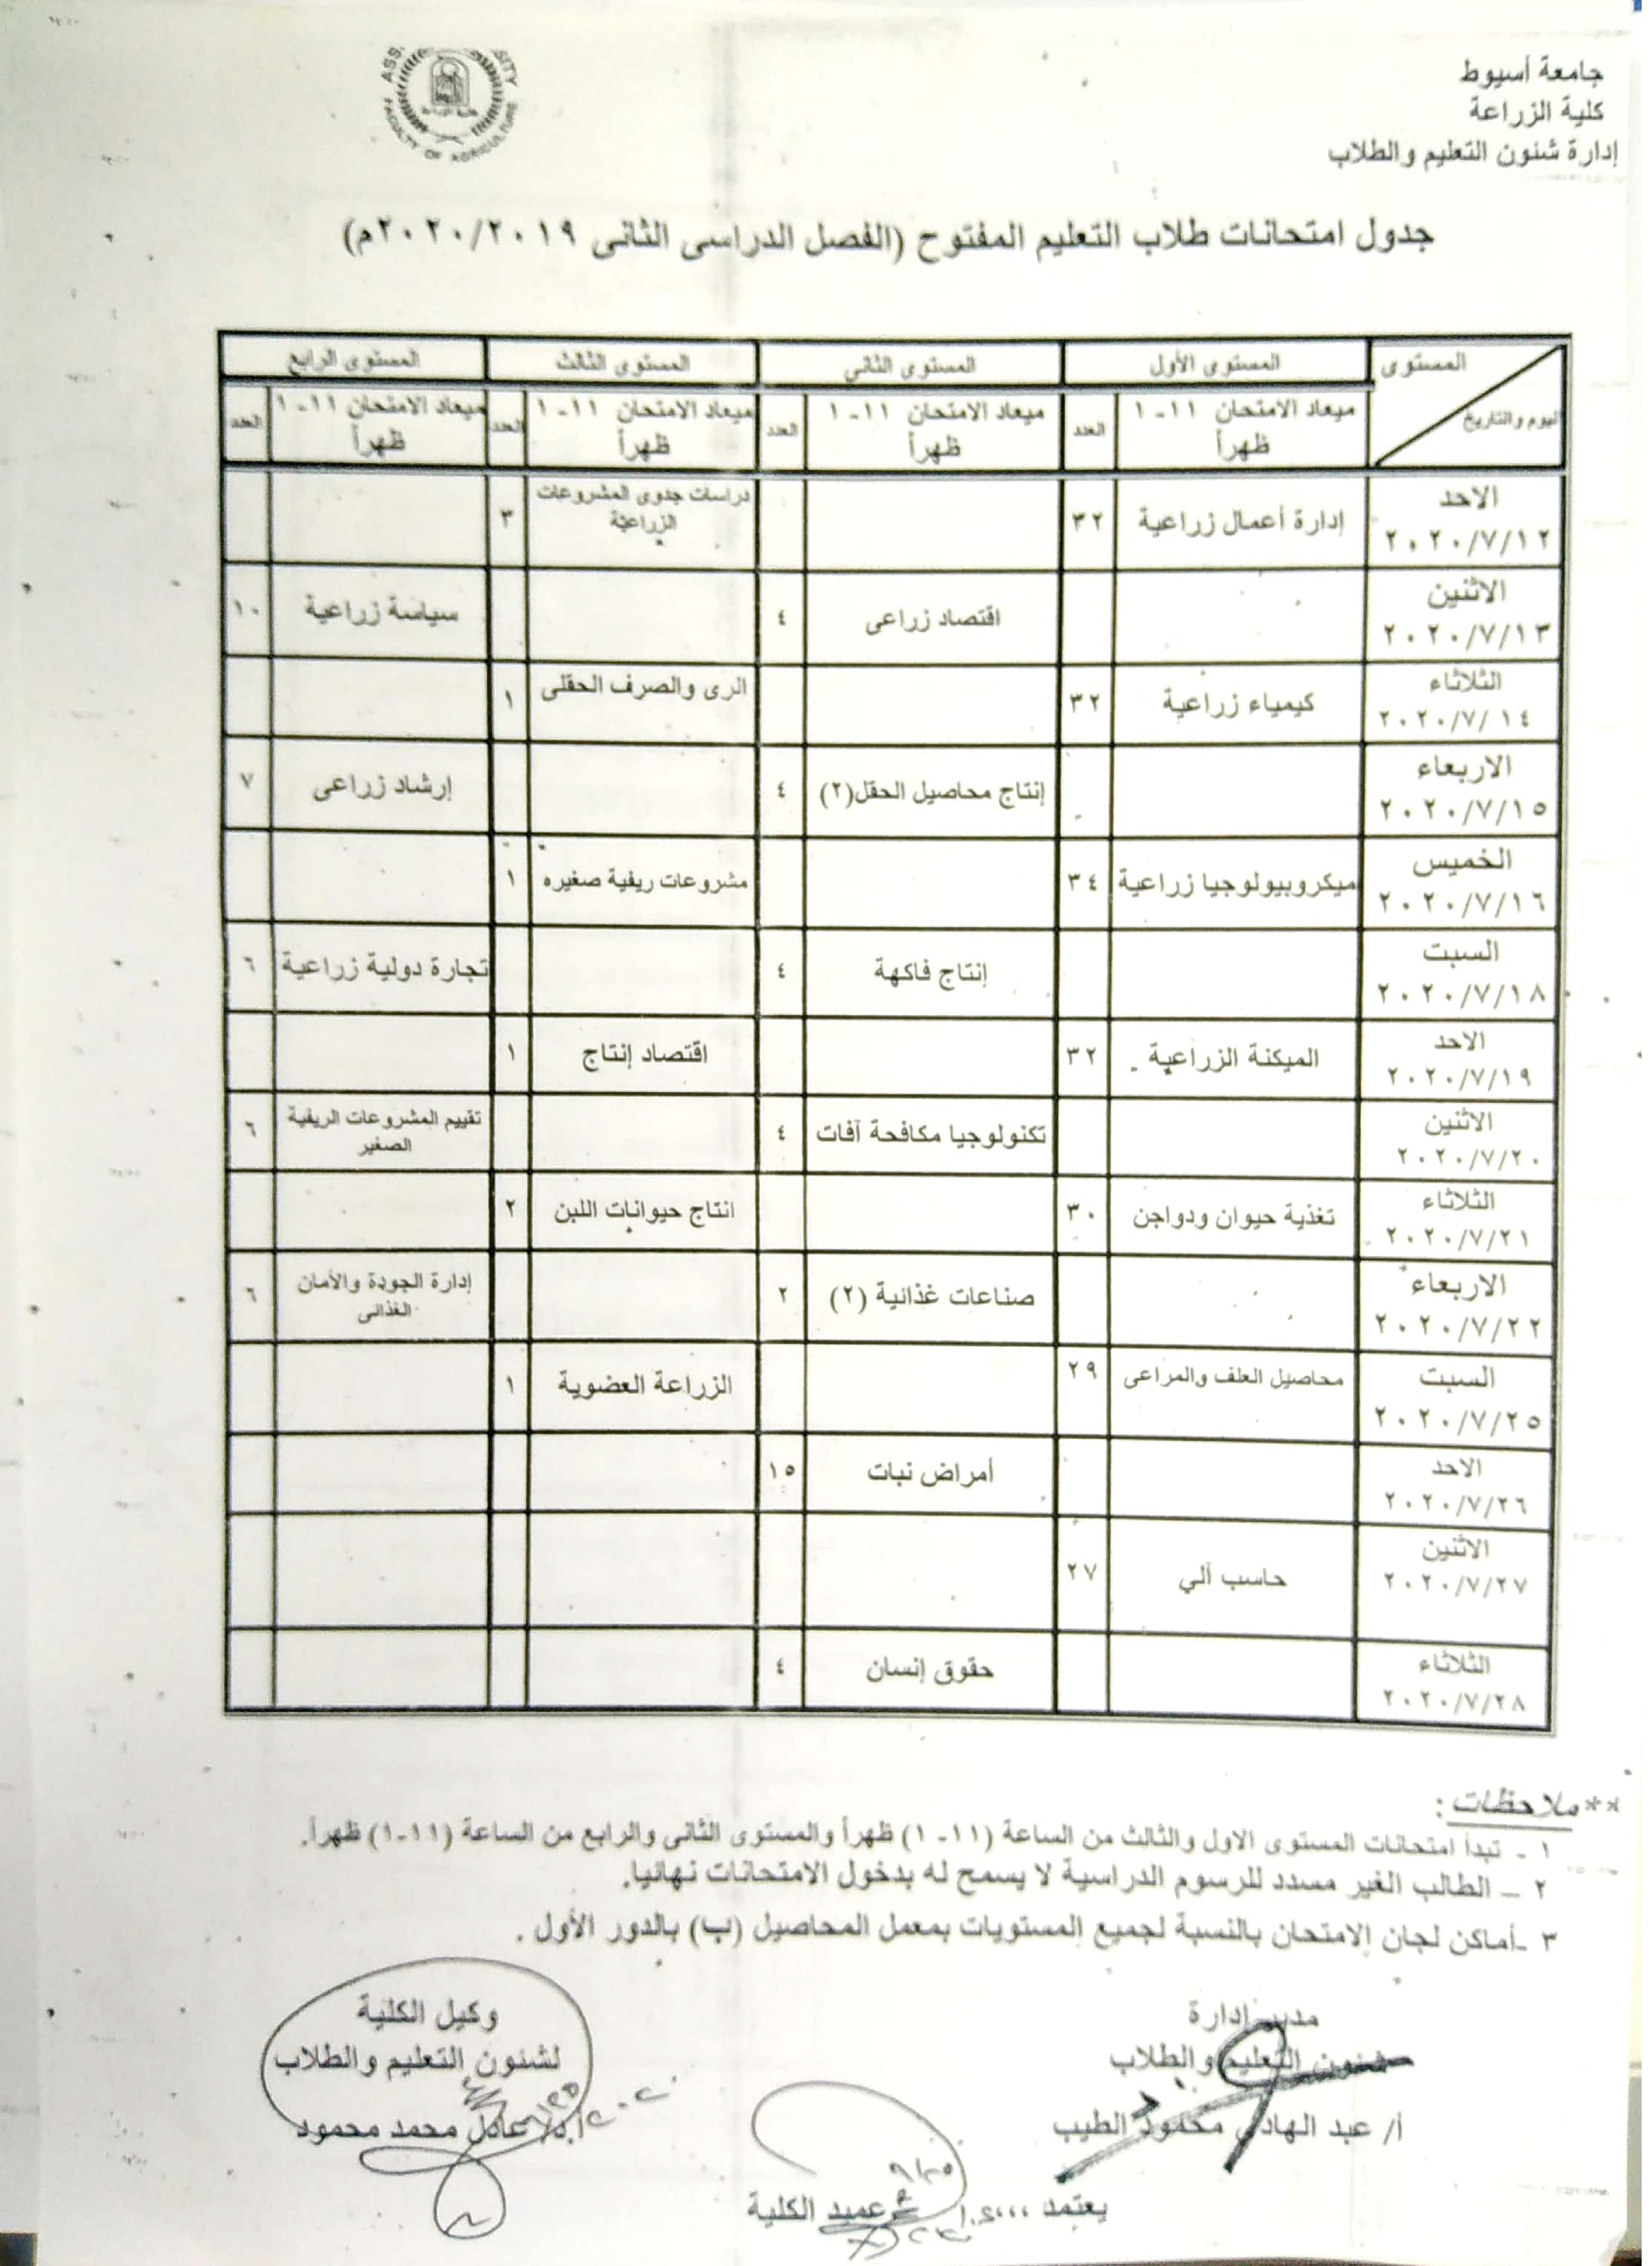 جامعة أسيوط
كلية الزراعة
إدارة شئون التعليم والطلاب
FACULTY OF AGRICULTURE
جدول امتحانات طلاب التعليم المفتوح (الفصل الدراسى الثانى ٢٠٢٠/٢٠١٩م)
المستوى المستوى الأول المستوى الثانى المستوى الثالث المستوى الرابع
اليوم والتاريخ ميعاد الامتحان ١١-١ ظهراً العدد ميعاد الامتحان ١١-١ ظهراً العدد ميعاد الامتحان ١١-١ ظهراً العدد ميعاد الامتحان ١١-١ ظهراً العدد
الاحد ٢٠٢٠/٧/١٢ إدارة أعمال زراعية ٣٢ دراسات جدوى المشروعات الزراعية ٣
الاثنين ٢٠٢٠/٧/١٣ اقتصاد زراعى ٤ سياسة زراعية ١٠
الثلاثاء ٢٠٢٠/٧/١٤ كيمياء زراعية ٣٢ الرى والصرف الحقلى ١
الاربعاء ٢٠٢٠/٧/١٥ إنتاج محاصيل الحقل(٢) ٤ إرشاد زراعى ٧
الخميس ٢٠٢٠/٧/١٦ ميكروبيولوجيا زراعية ٣٤ مشروعات ريفية صغيره ١
السبت ٢٠٢٠/٧/١٨ إنتاج فاكهة ٤ تجارة دولية زراعية ٦
الاحد ٢٠٢٠/٧/١٩ الميكنة الزراعية ٣٢ اقتصاد إنتاج ١
الاثنين ٢٠٢٠/٧/٢٠ تكنولوجيا مكافحة آفات ٤ تقييم المشروعات الريفية الصغير ٦
الثلاثاء ٢٠٢٠/٧/٢١ تغذية حيوان ودواجن ٣٠ انتاج حيوانات اللبن ٢
الاربعاء ٢٠٢٠/٧/٢٢ صناعات غذائية (٢) ٢ إدارة الجودة والأمان الغذائى ٦
السبت ٢٠٢٠/٧/٢٥ محاصيل العلف والمراعى ٢٩ الزراعة العضوية ١
الاحد ٢٠٢٠/٧/٢٦ أمراض نبات ١٥
الاثنين ٢٠٢٠/٧/٢٧ حاسب آلي ٢٧
الثلاثاء ٢٠٢٠/٧/٢٨ حقوق إنسان ٤
**ملاحظات:
١ - تبدأ امتحانات المستوى الاول والثالث من الساعة (١١-١) ظهراً والمستوى الثانى والرابع من الساعة (١١-١) ظهراً.
٢ – الطالب الغير مسدد للرسوم الدراسية لا يسمح له بدخول الامتحانات نهائيا.
٣ -أماكن لجان الامتحان بالنسبة لجميع المستويات بمعمل المحاصيل (ب) بالدور الأول .
مدير إدارة
شئون التعليم والطلاب
أ/ عبد الهادى محمود الطيب
وكيل الكلية
لشئون التعليم والطلاب
أ.د/ عادل محمد محمود
يعتمد ،،،،
عميد الكلية